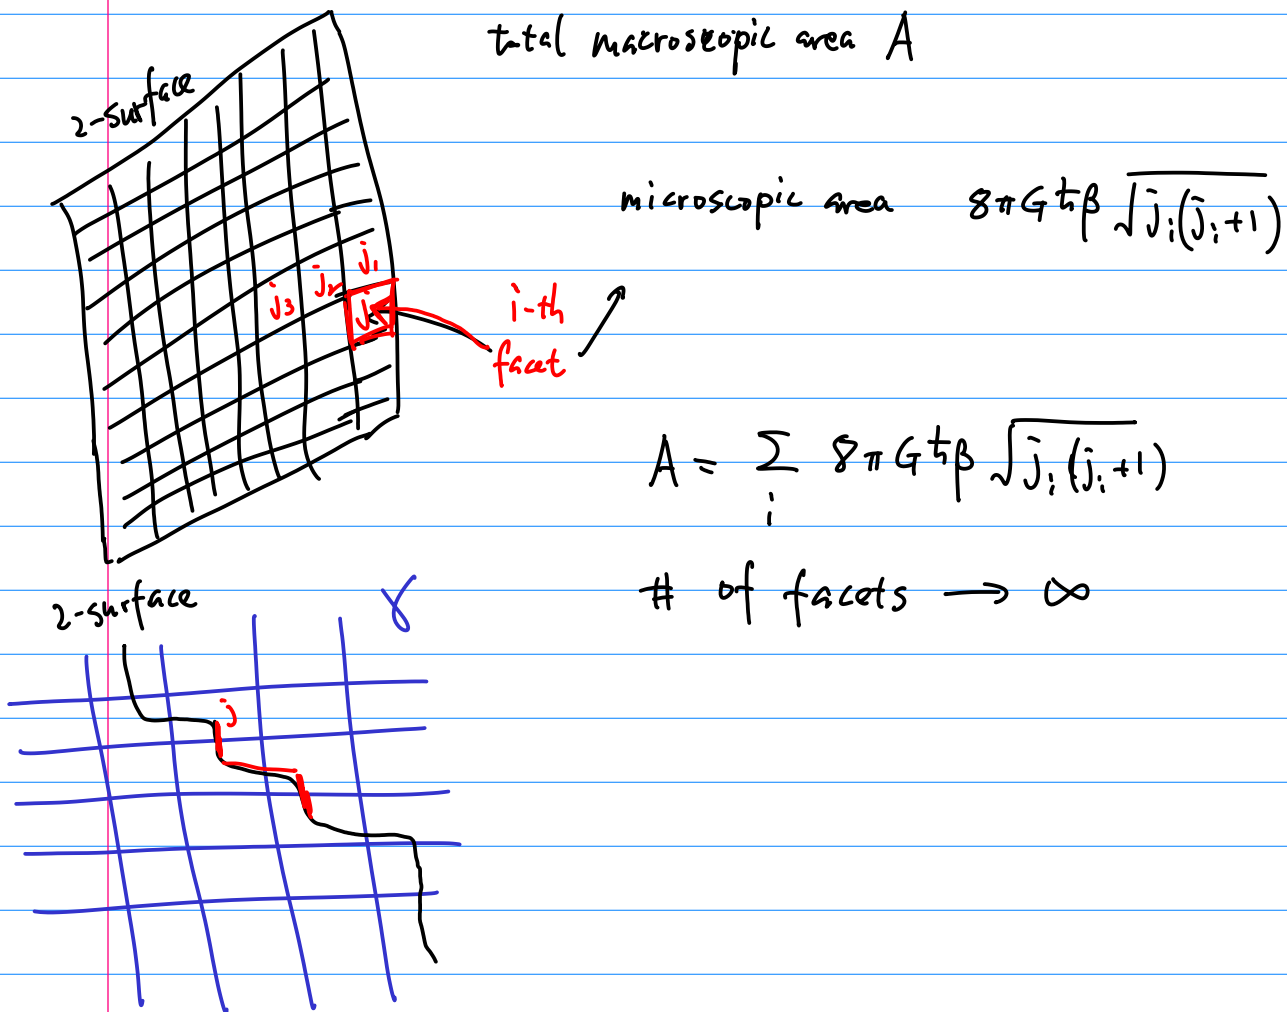 total macroscopic area A
2-surface
microscopic area 8πGℏβ √(jᵢ(jᵢ+1))
j₁
j₂
j₃
jᵢ
i-th
facet
A = Σᵢ 8πGℏβ √(jᵢ(jᵢ+1))
# of facets → ∞
2-surface
γ
j